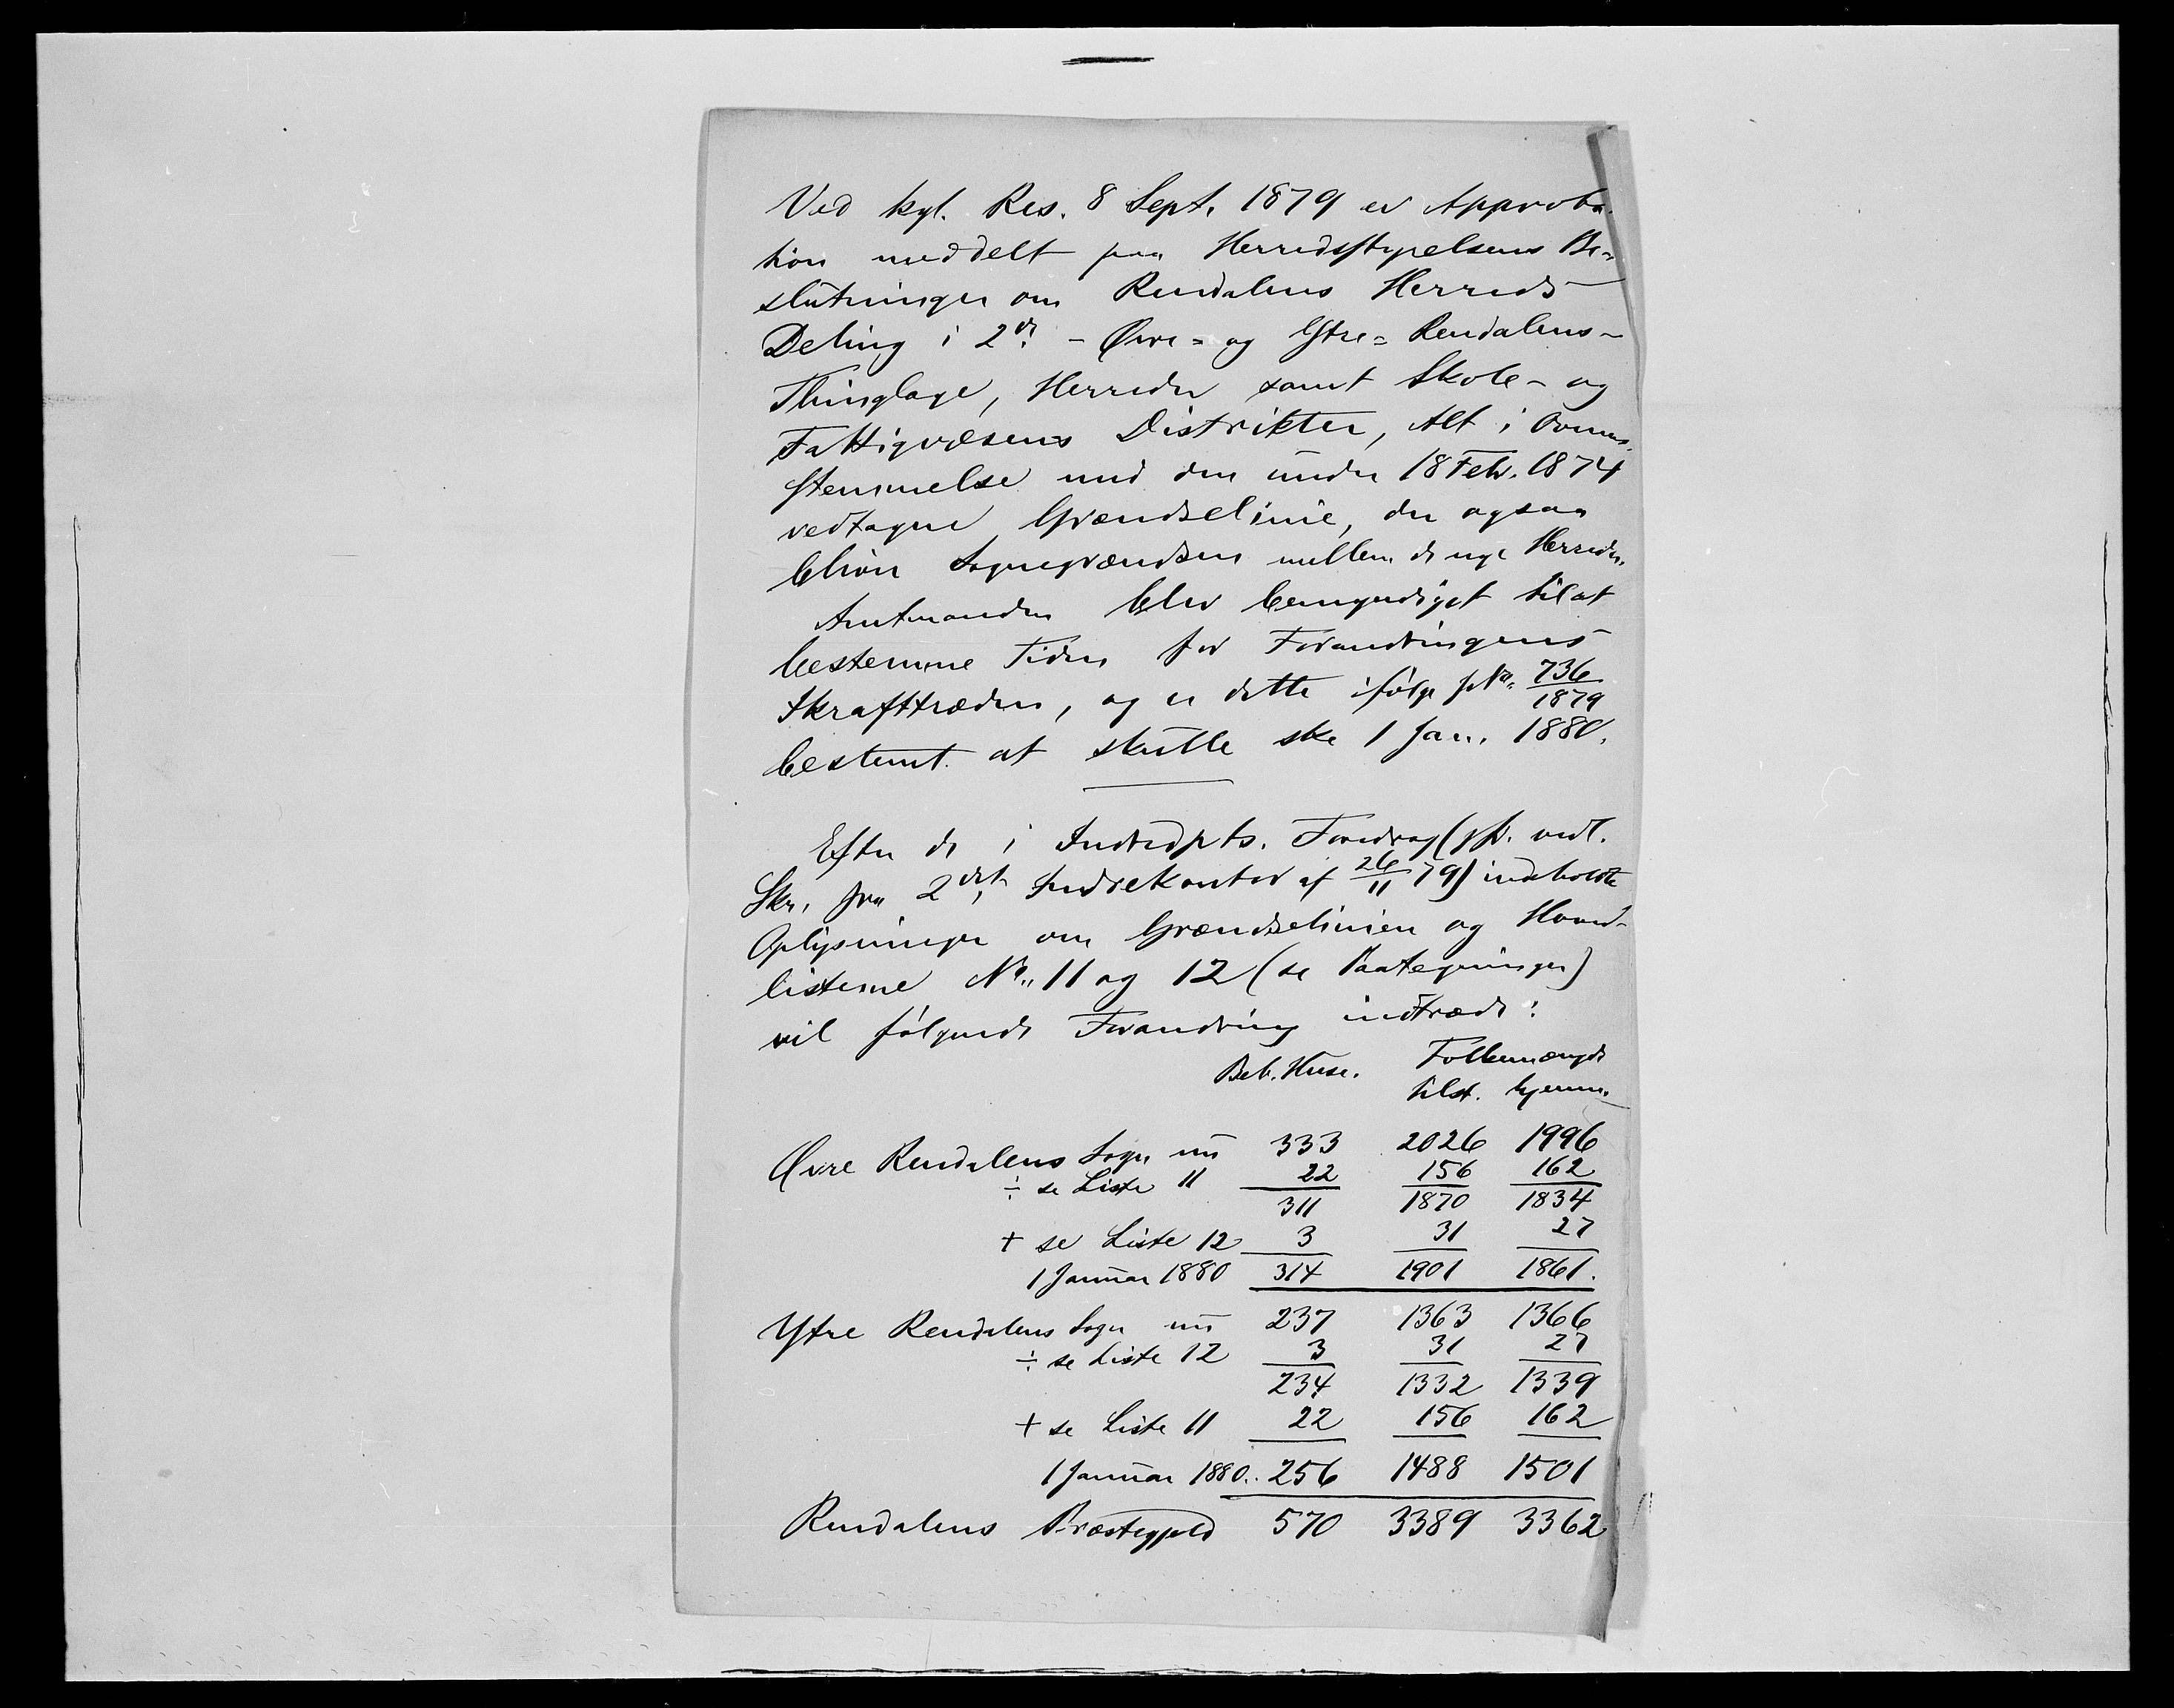 Ved kgl. Res. 8 Sept. 1879 er Approba-
tion meddelt paa Herredsstyrelsens Be-
slutninger om Rendalens Herreds
Deling i 2de – Øvre- og Ytre- Rendalens –
Thinglage, Herreder samt Skole- og
Fattigvæsens Distrikter, Alt i Overens-
stemmelse med den under 18 Febr. 1874
vedtagne Grændselinie, der ogsaa
bliver Sognegrændsen mellem de nye Herreder.
Amtmanden blev bemyndiget til at
bestemme Tiden for Forandringens
Ikrafttræden, og er dette ifølge No. 736/1879
bestemt at skulle ske 1 Jan. 1880.
Efter de i Indredpts. Foredrag (jfr. vedl.
Skr. fra 2det Indrekontor af 26/11 79) indeholdte
Oplysninger om Grændselinien og Hoved-
listerne No. 11 og 12 (se Paategninger)
vil følgende Forandring indtræde:
Beb. Huse. Folkemængde
tilst. hjemm.
Øvre Rendalens Sogn nu 333 2026 1996
÷ se Liste 11 22 156 162
311 1870 1834
+ se Liste 12 3 31 27
1 Januar 1880 314 1901 1861.
Ytre Rendalens Sogn nu 237 1363 1366
÷ se Liste 12 3 31 27
234 1332 1339
+ se Liste 11 22 156 162
1 Januar 1880. 256 1488 1501
Rendalens Præstegjeld 570 3389 3362